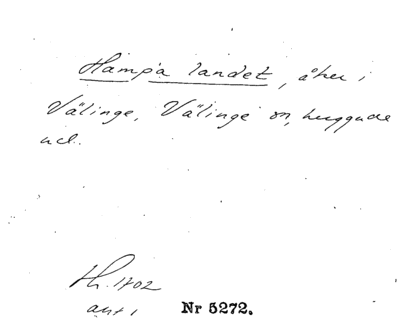 Hampa landet, åker i
Välinge, Välinge sn, luggude
hd.
Th. 1702
akt 1
Nr 5272.